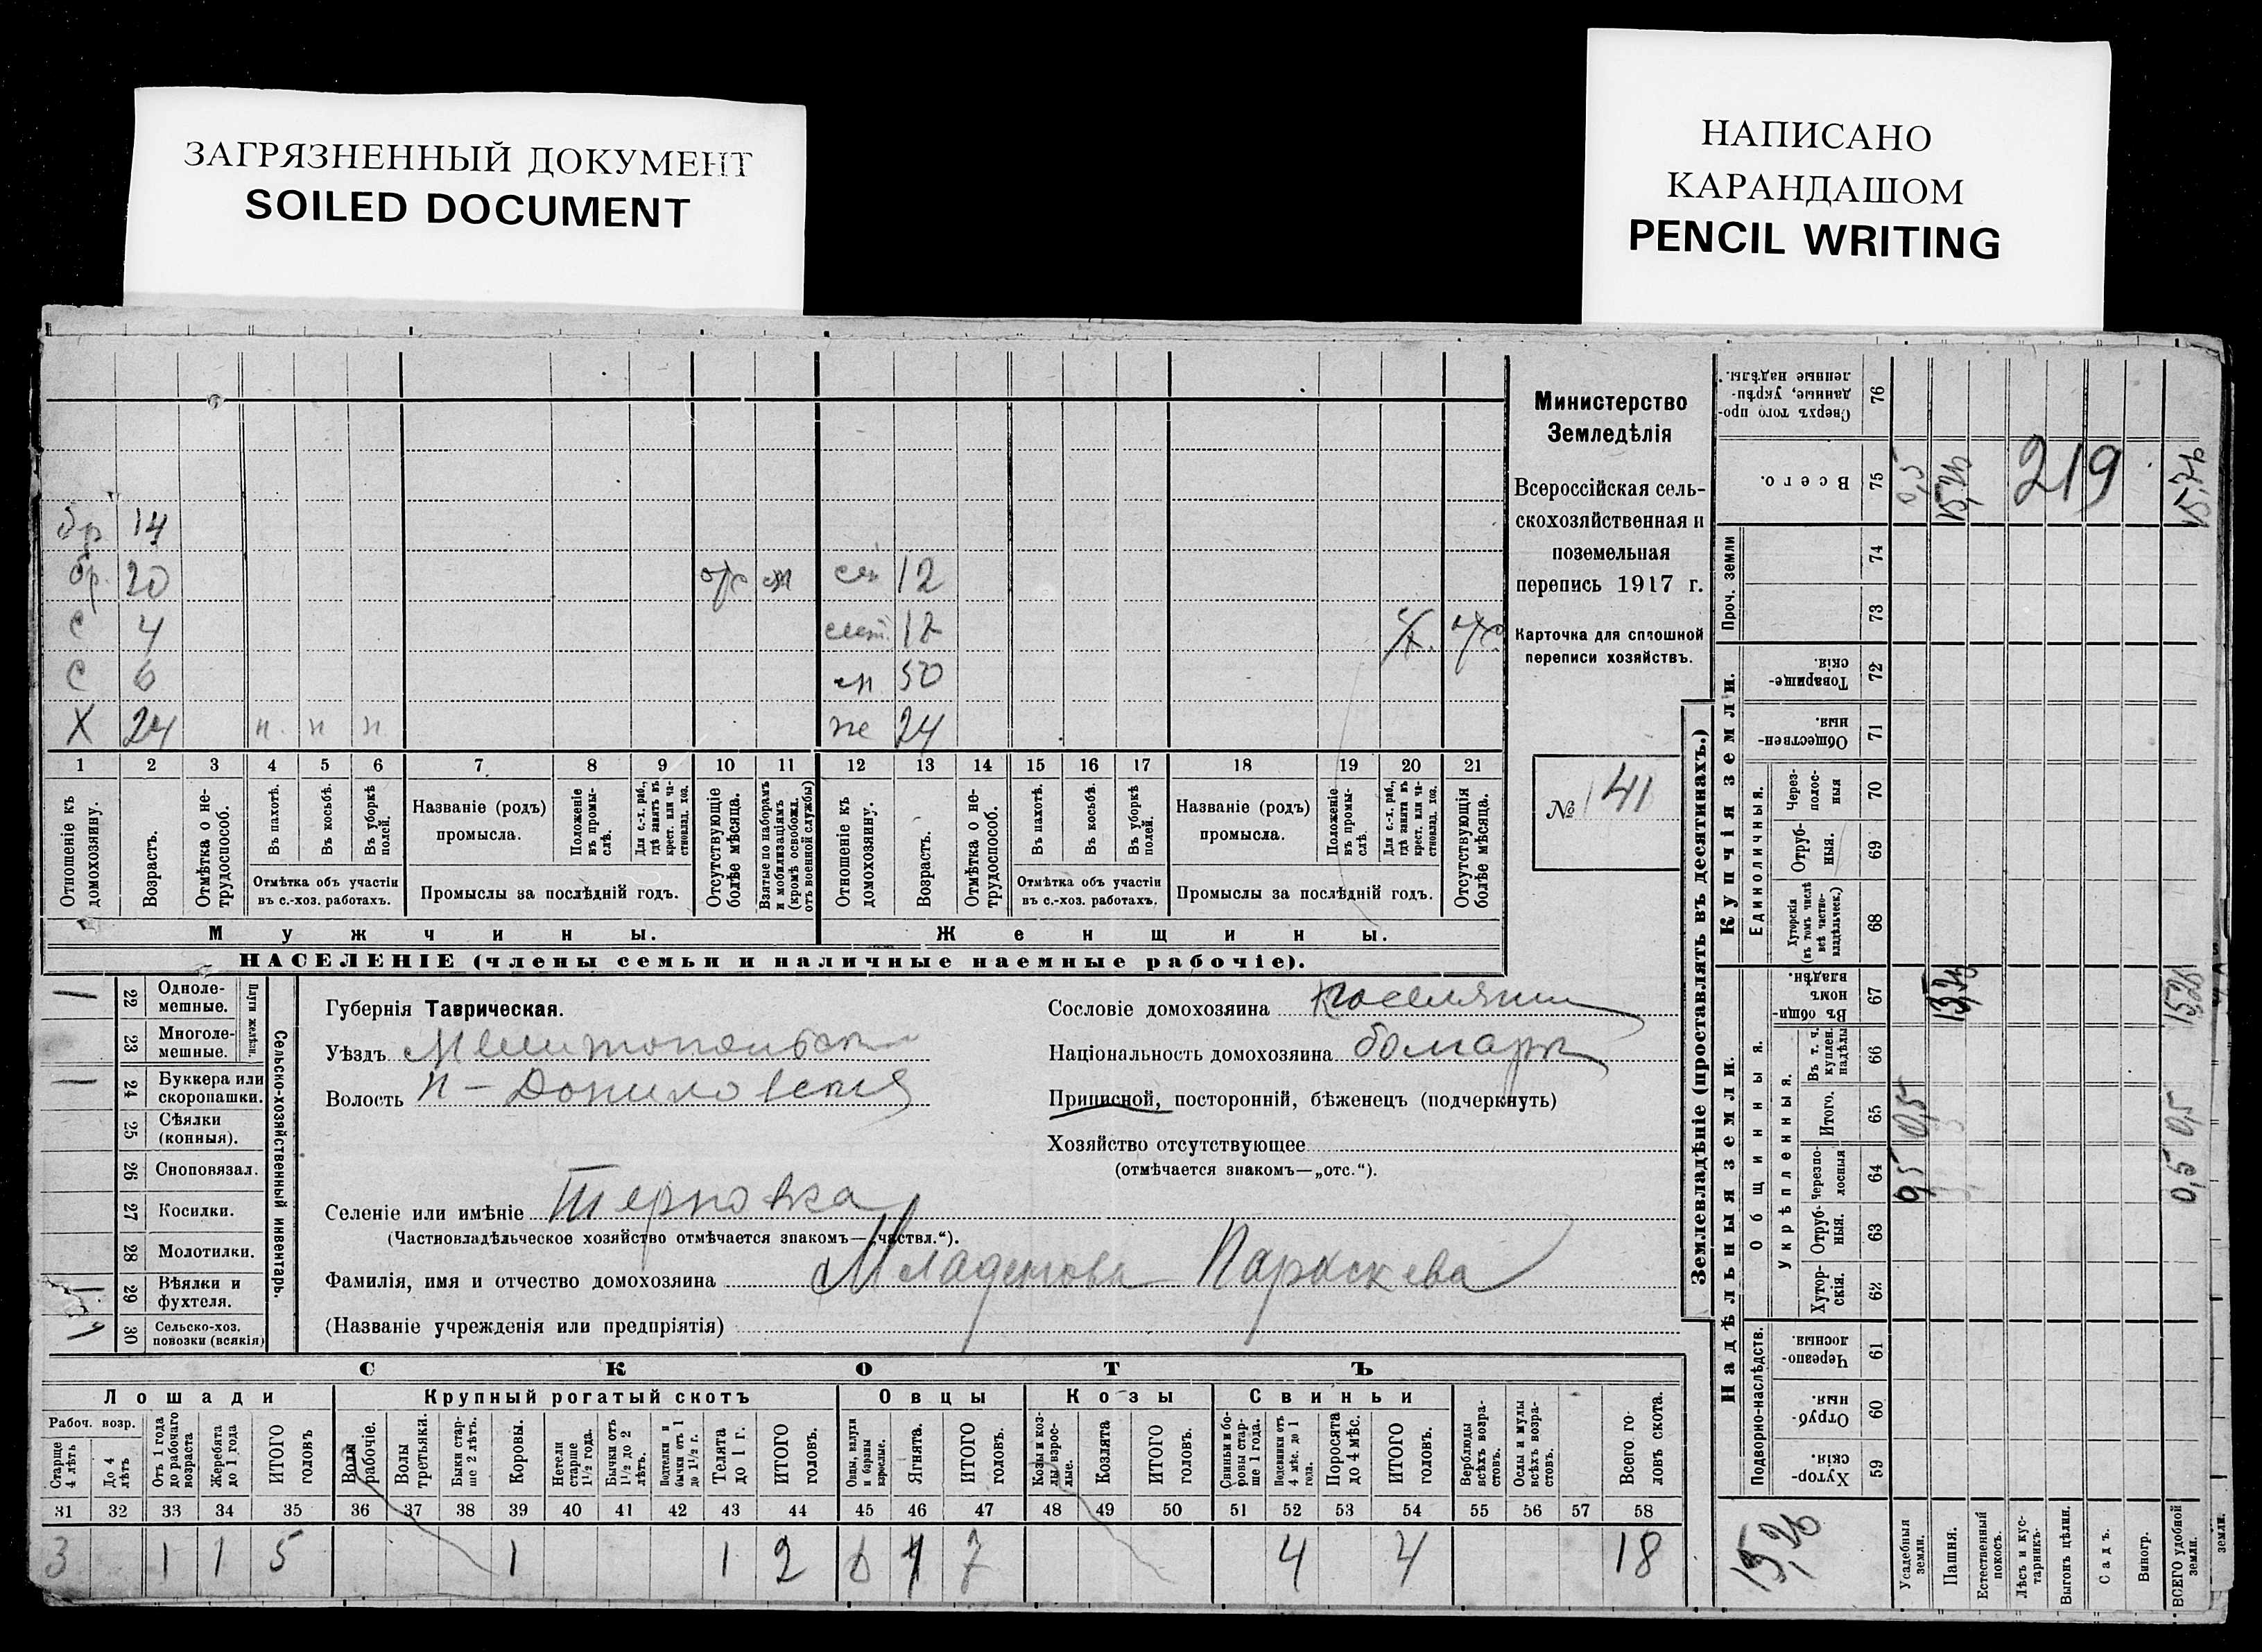 ЗАГРЯЗНЕННЫЙ ДОКУМЕНТ
SOILED DOCUMENT
НАПИСАНО
КАРАНДАШОМ
PENCIL WRITING
бр 14
бр. 20 отс сн 12
с 4 сест. 12 с/х. отс.
с 6 сн 50
Х 24 п. п п же 24
1 2 3 4 5 6 7 8 9 10 11 12 13 14 15 16 17 18 19 20 21
Отношеніе къ домохозяину.
Возрастъ.
Отмѣтка о нетрудоспособ.
Въ пахотѣ.
Въ косьбѣ.
Въ уборкѣ полей.
Отмѣтка объ участіи въ с.-хоз. работахъ.
Названіе (родъ) промысла.
Положеніе въ промыслѣ.
Для с.-х. раб., гдѣ занятъ въ крест. или частновлад. хоз.
Промыслы за послѣдній годъ.
Отсутствующіе болѣе мѣсяца.
Взятые по наборамъ и мобилизаціямъ (кромѣ освобожд. отъ военной службы)
Отношеніе къ домохозяину.
Возрастъ.
Отмѣтка о нетрудоспособ.
Въ пахотѣ.
Въ косьбѣ.
Въ уборкѣ полей.
Отмѣтка объ участіи въ с.-хоз. работахъ.
Названіе (родъ) промысла.
Положеніе въ промыслѣ.
Для с.-х. раб., гдѣ занятъ въ крест. или частновлад. хоз.
Промыслы за послѣдній годъ.
Отсутствующія болѣе мѣсяца.
Мужчины.
Женщины.
НАСЕЛЕНІЕ (члены семьи и наличные наемные рабочіе).
Министерство
Земледѣлія
Всероссійская сель-
скохозяйственная и
поземельная
перепись 1917 г.
Карточка для сплошной
переписи хозяйствъ.
№ 41
22 Однолемешные.
23 Многолемешные.
Плуги желѣзн.
24 Буккера или скоропашки.
25 Сѣялки (конныя).
26 Сноповязал.
27 Косилки.
28 Молотилки.
29 Вѣялки и фухтеля.
30 Сельско-хоз. повозки (всякія)
Сельско-хозяйственный инвентарь.
Губернія Таврическая.
Уѣздъ Мелитопольск
Волость Н-Даниловская
Сословіе домохозяина поселянин
Національность домохозяина болгарк
Приписной, посторонній, бѣженецъ (подчеркнуть)
Хозяйство отсутствующее
(отмѣчается знакомъ—„отс.“).
Селеніе или имѣніе Терновка
(Частновладѣльческое хозяйство отмѣчается знакомъ—„частвл.“).
Фамилія, имя и отчество домохозяина Младенова Параскева
(Названіе учрежденія или предпріятія)
СКОТЪ
Лошади Крупный рогатый скотъ Овцы Козы Свиньи
Рабоч. возр.
Старше 4 лѣтъ
До 4 лѣтъ
Отъ 1 года до рабочаго возраста
Жеребята до 1 года
ИТОГО головъ
Волы рабочіе.
Волы третьяки.
Быки старше 2 лѣтъ.
Коровы.
Нетели старше 1½ года.
Бычки отъ 1½ до 2 лѣтъ.
Подтелки и бычки отъ 1 до 1½ г.
Телята до 1 г.
ИТОГО головъ.
Овцы, валухи и бараны взрослые.
Ягнята.
ИТОГО головъ.
Козы и козлы взрослые.
Козлята
ИТОГО головъ.
Свиньи и боровы старше 1 года.
Подсвинки отъ 4 мѣс. до 1 года.
Поросята до 4 мѣс.
ИТОГО головъ.
Верблюды всѣхъ возрастовъ.
Ослы и мулы всѣхъ возрастовъ.
Всего головъ скота.
31 32 33 34 35 36 37 38 39 40 41 42 43 44 45 46 47 48 49 50 51 52 53 54 55 56 57 58
3 1 1 5 1 1 2 6 1 7 4 4 18
Землевладѣніе (проставлять въ десятинахъ.)
Надѣльныя земли.
Купчія земли.
Проч. земли
Подворно-наслѣдств.
Общинныя.
Укрѣпленныя.
Единоличныя.
Хуторскія. 59
Отрубныя. 60
Черезполосныя 61
Хуторскія. 62
Отрубныя. 63
Черезполосныя 64
Итого. 65
Въ т. ч. куплен. надѣлы 66
Въ общинномъ владѣн. 67
Хуторскія (въ томъ числѣ всѣ частновладѣльческ.) 68
Отрубныя. 69
Черезполосныя 70
Общественныя 71
Товарищескія. 72
73
74
Всего. 75
Сверхъ того проданные, укрѣпленные надѣлы. 76
Усадебныя земли.
Пашня.
Естественный покосъ.
Лѣсъ и кустарникъ.
Выгонъ цѣлин.
Садъ.
Виногр.
ВСЕГО удобной земли.
земли.
0,5 0,5 0,5
15,26 15,26
219
0,5 0,5 15,26 15,76
15,26